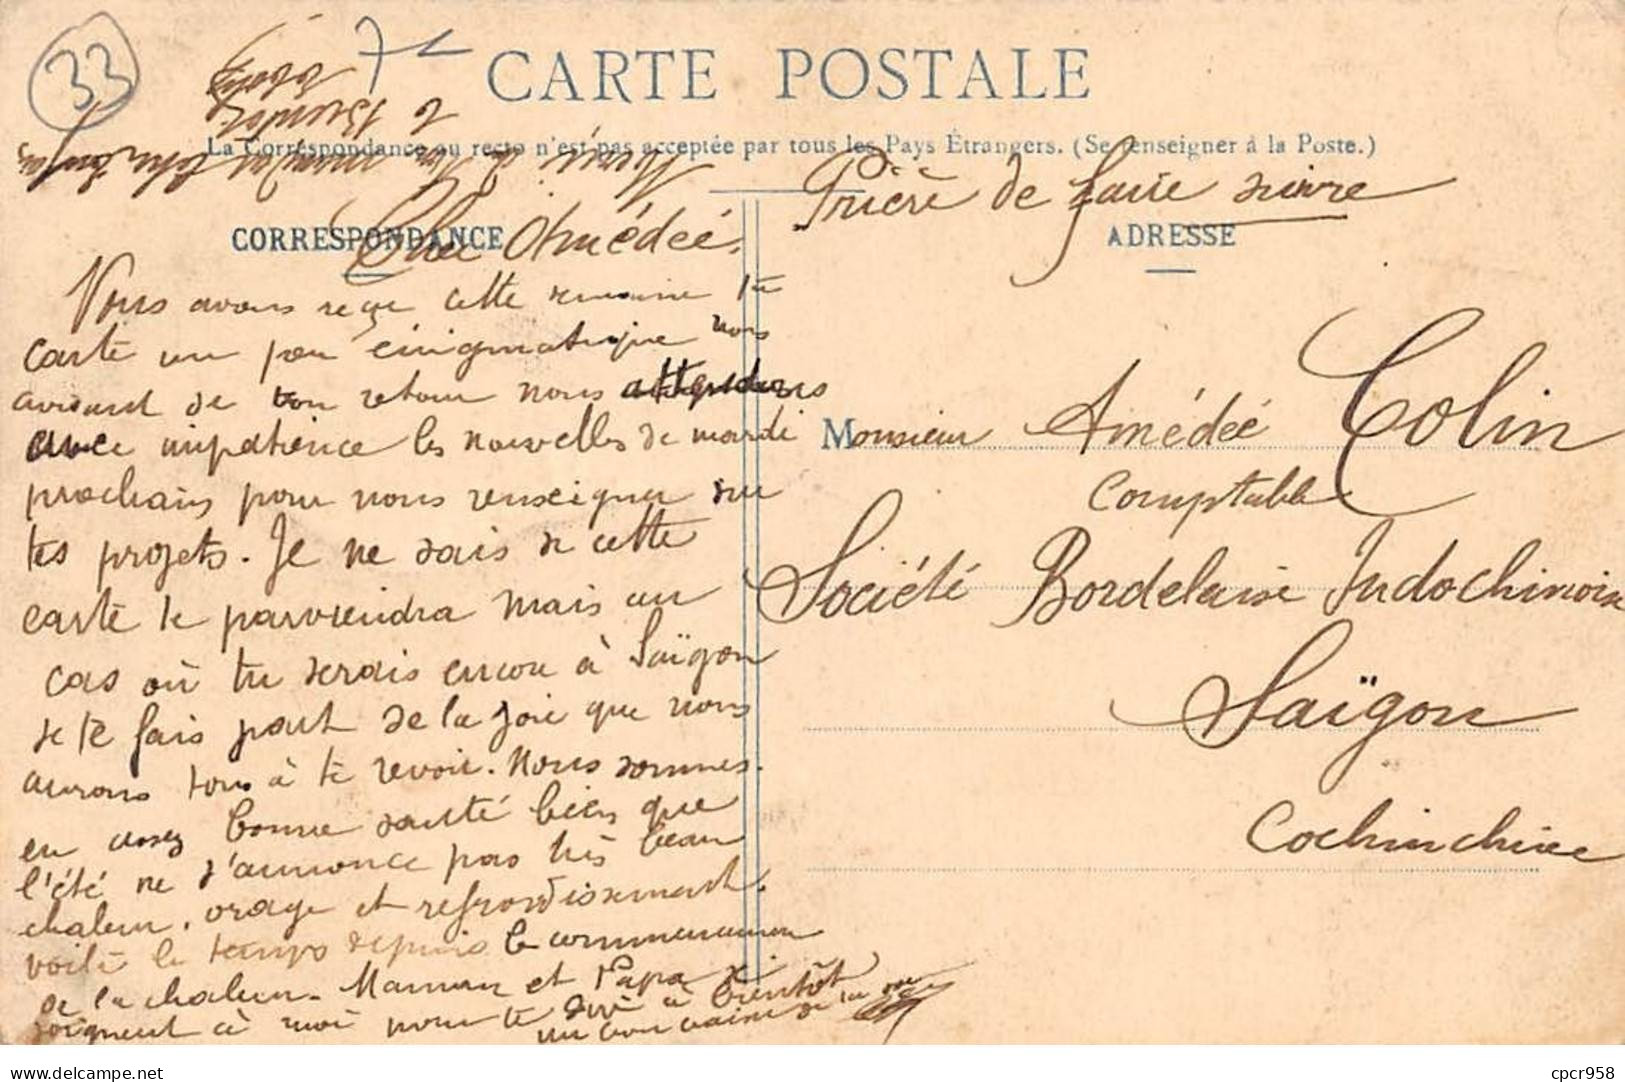 33
CARTE POSTALE
La Correspondance au recto n'est pas acceptée par tous les Pays Étrangers. (Se renseigner à la Poste.)
CORRESPONDANCE
ADRESSE
Prière de faire suivre
Cher Amédée,
Nous avons reçu cette semaine ta
carte un peu énigmatique nous
avisant de ton retour nous attendons
avec impatience les nouvelles de mardi
prochain pour nous renseigner sur
tes projets. Je ne sais si cette
carte te parviendra mais au
cas où tu serais encore à Saïgon
je te fais part de la joie que nous
aurons tous à te revoir. Nous sommes
en assez bonne santé bien que
l'été ne s'annonce pas très beau
chaleur, orage et refroidissement.
voilà le temps depuis le commencement
de la chaleur. Maman et Papa se
joignent à moi pour te dire à bientôt
un bon baiser de ta
Monsieur Amédée Colin
Comptable
Société Bordelaise Indochinoise
Saïgon
Cochinchine
cpcr958